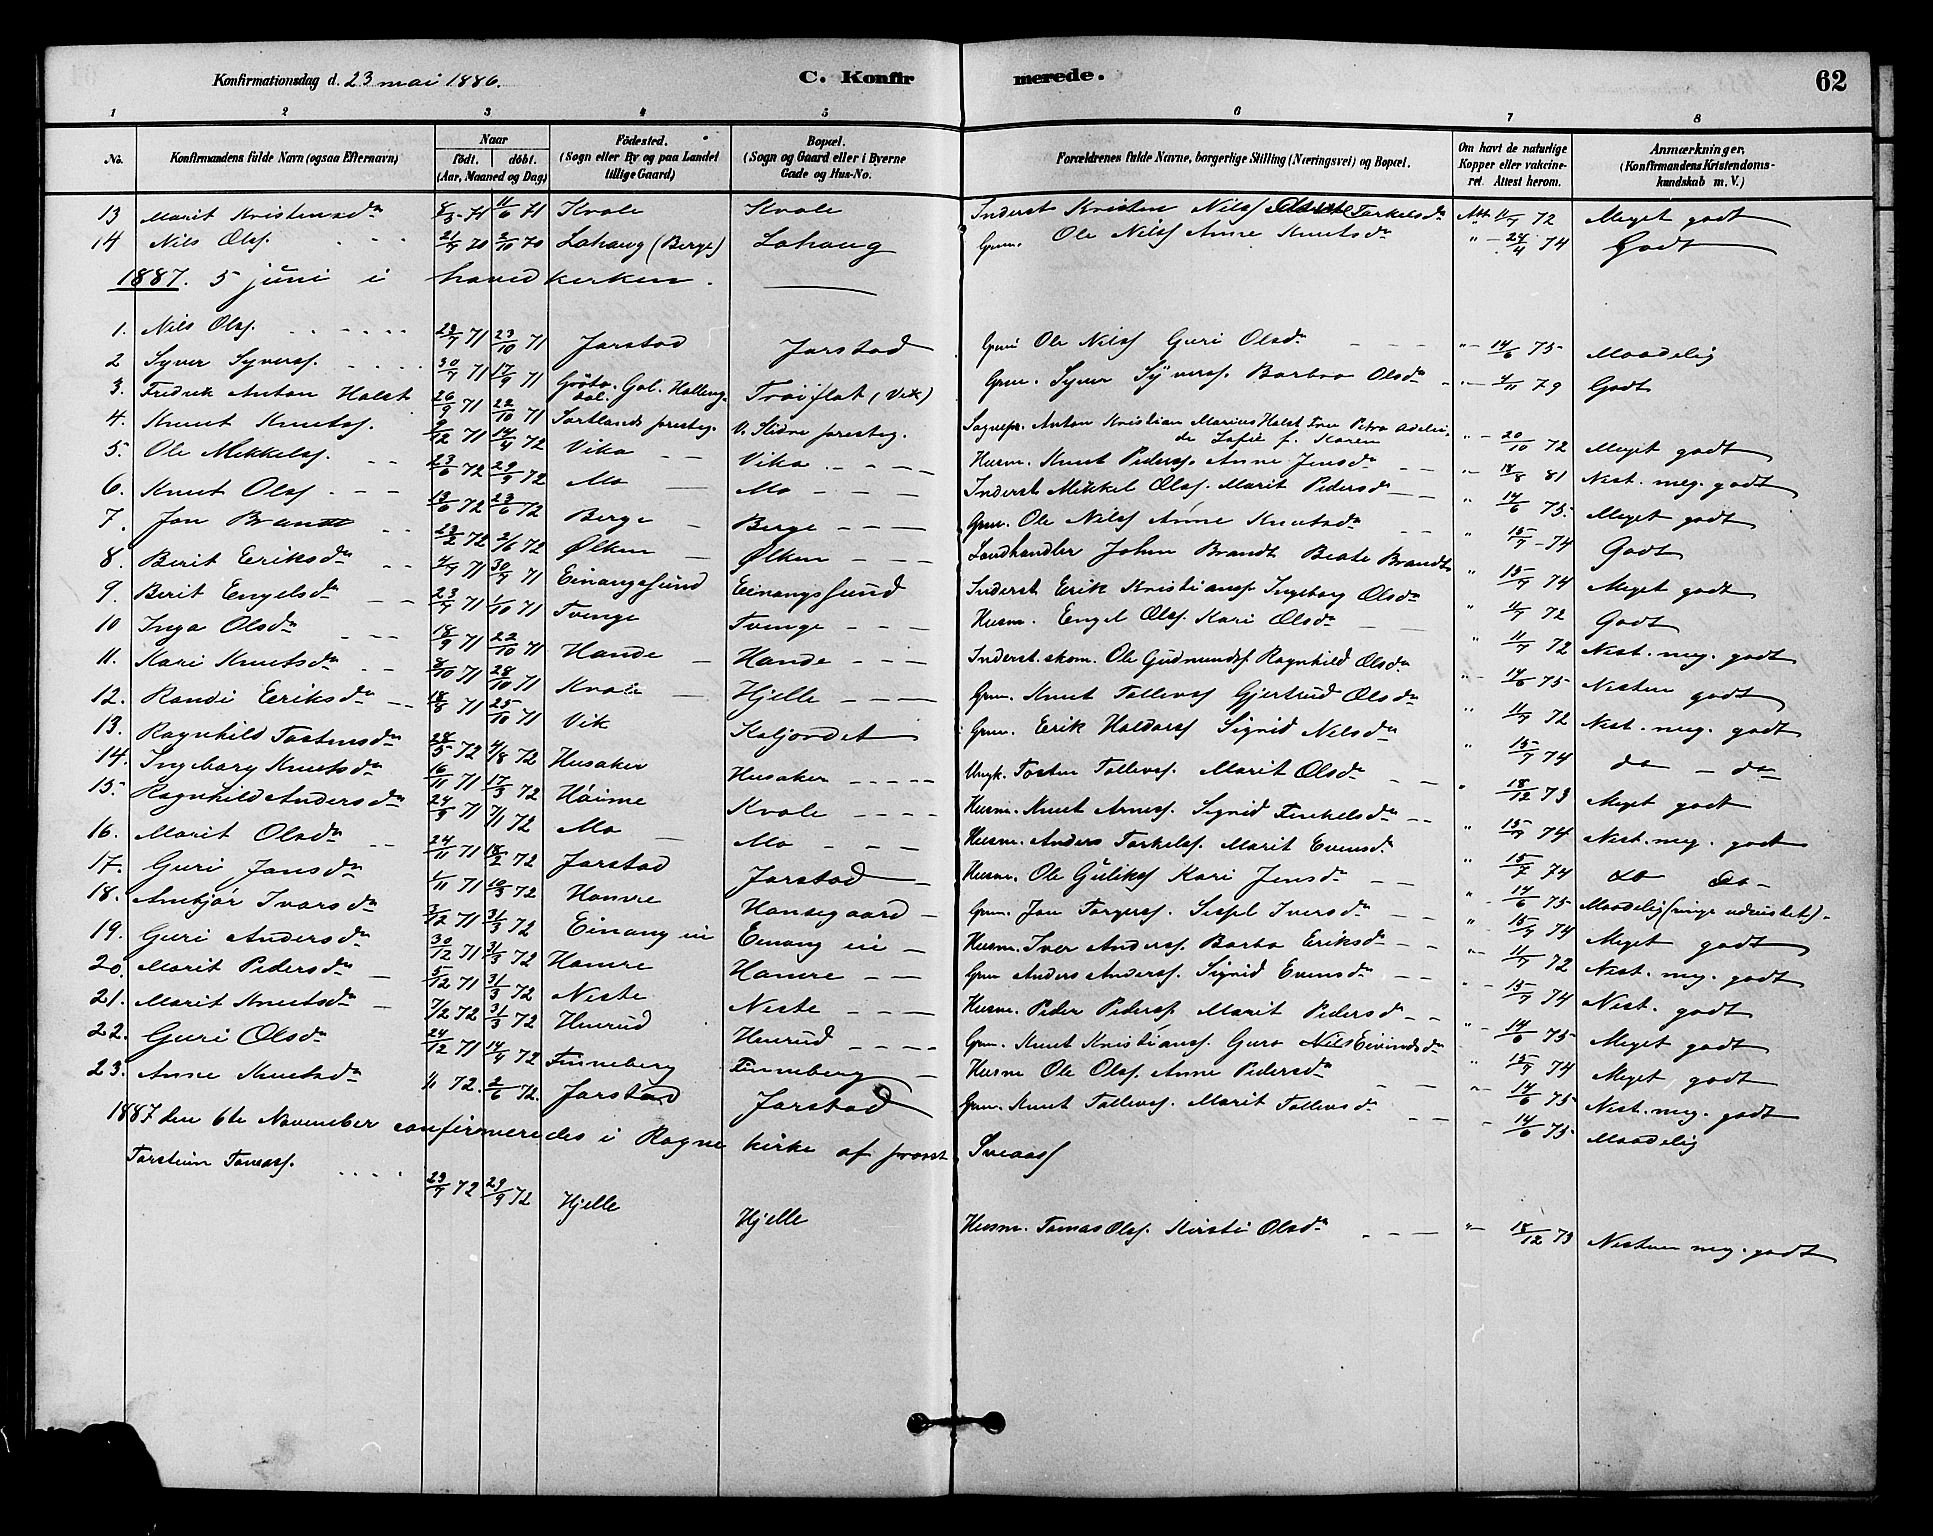 Konfirmationsdag d. 23 mai 1886.
C. Konfirmerede.
62
1 2 3 4 5 6 7 8
No. Konfirmandens fulde Navn (ogsaa Efternavn) Naar födt. döbt. (Aar, Maaned og Dag) Födested. (Sogn eller By og paa Landet tillige Gaard) Bopæl. (Sogn og Gaard eller i Byerne Gade og Hus-No. Forældrenes fulde Navne, borgerlige Stilling (Næringsvei) og Bopæl. Om havt de naturlige Kopper eller vakcineret. Attest herom. Anmærkninger, (Konfirmandens Kristendomskundskab m. V.)
13 Marit Kristensda 8/3 71 11/6 71 Kvale Kvale Inderst Kristen Nilss Torkelsda Att 11/7 72 Meget godt
14 Nils Olss. 21/9 70 2/10 70 Lohaug (Berge) Lohaug Grm. Ole Nilss Anne Knutsda " 24/4 74 Godt
1887. 5 juni i hovedkirken.
1. Nils Olss. 23/7 71 23/10 71 Jarstad Jarstad Grm Ole Nilss Guri Olsda " 14/6 75 Maadelig
2 Syver Syverss. 30/7 71 17/9 71 Gol. Halling- dal. Trøiflat (Vik) Grm. Syver Syverss. Barbro Olsda " 4/11 79 Godt
3. Fredrik Anton Holst 26/9 71 22/10 71 Sortlands presteg. V. Slidre presteg. Sognepr. Anton Kristian Marius Holst Fru Petra Adelei- de Sofie f. Koren " 20/10 72 Meget godt
4. Knut Knutss. 9/12 71 14/4 72 Vika Vika Husm. Knut Pederss. Anne Jensda " 18/8 81 Nest. meg. godt
5. Ole Mikkelss. 23/6 72 29/9 72 Mo Mo Inderst Mikkel Olss. Marit Pedersda " 14/6 75 Meget godt
6. Knut Olss. 13/6 72 23/6 72 Berge Berge Grm. Ole Nilss Anne Knutsda " 15/7 74 Godt
7. Jon Brandt 23/2 72 2/6 72 Ølken Ølken Landhandler John Brandt Beate Brandt " 15/7 74 Meget godt
8. Berit Eriksda 4/7 71 30/7 71 Einangssund Einangssund Inderst Erik Kristianss. Ingeborg Olsda " 11/7 72 Godt
9. Berit Engelsda 23/7 71 1/10 71 Tvenge Tvenge Husm. Engel Olss. Kari Olsda " 11/7 72 Nest. meg. godt
10 Inga Olsda 18/9 71 22/10 71 Hande Hande Inderst. skom. Ole Gudmundss Ragnhild Olsda " 14/6 75 Nesten godt
11. Kari Knutsda 8/10 71 28/10 71 Kvale Hjelle Grm. Knut Tollevss Gjertrud Olsda " 11/7 72 Nest. meg. godt
12. Randi Eriksda 18/8 71 25/10 71 Vik Kaljordet Grm. Erik Haldorss Sigrid Nilsda " 15/7 74 do - do
13. Ragnhild Tostensda 28/5 72 4/8 72 Husaker Husaker Ungk. Tosten Tollevss. Marit Olsda " 18/12 73 Meget godt
14. Ingeborg Knutsda 16/11 71 17/3 72 Høime Kvale Husm. Knut Arness. Sigrid Torkelsda " 15/7 74 Nest. meg. godt
15. Ragnhild Andersda 24/9 71 7/1 72 Mo Mo Husm. Anders Torkelss. Marit Evensda " 15/7 74 do do
16. Marit Olsda 24/11 71 18/2 72 Jarstad Jarstad Husm. Ole Gulikss Kari Jensda " 14/6 75 Maadelig (ringe udrustet)
17. Guri Jonsda 1/11 71 10/3 72 Hamre Hansegaard Grm. Jon Torgerss. Sispl Iversda " 15/7 74 Meget godt
18. Ambjør Ivarsda 3/12 71 31/3 72 Einang ei Einang ei Husm. Iver Anderss. Barbo Eriksda " 11/7 72 Nest. meg. godt
19. Guri Andersda 30/12 71 31/3 72 Hamre Hamre Grm Anders Anderss. Sigrid Evensda " 15/7 74 Nest. godt
20. Marit Pedersda 5/12 71 31/3 72 Neste Neste Husm. Peder Pederss Marit Pedersda " 14/6 75 Meget godt
21. Marit Knutsda 7/2 72 31/3 72 Hurud Hurud Grm. Knut Kristianss. Guro Eivindsda " 15/7 74 Meget godt
22. Guri Olsda 24/12 71 14/4 72 Finneberg Finneberg Husm Ole Olss. Anne Pedersda " 14/6 75 Nest. meg. godt
23. Anne Knutsda 1/1 72. 2/6 72. Jarstad Jarstad Grm. Knut Tollevss. Marit Tollevsda " 14/6 75 Maadelig
1887 den 6te November confirmeredes i Rogne kirke af provst Sveaass
Torstein Tomass. 23/7 72 29/9 72 Hjelle Hjelle Husm. Tomas Olss. Kirsti Olsda " 18/12 73 Nesten meg. godt